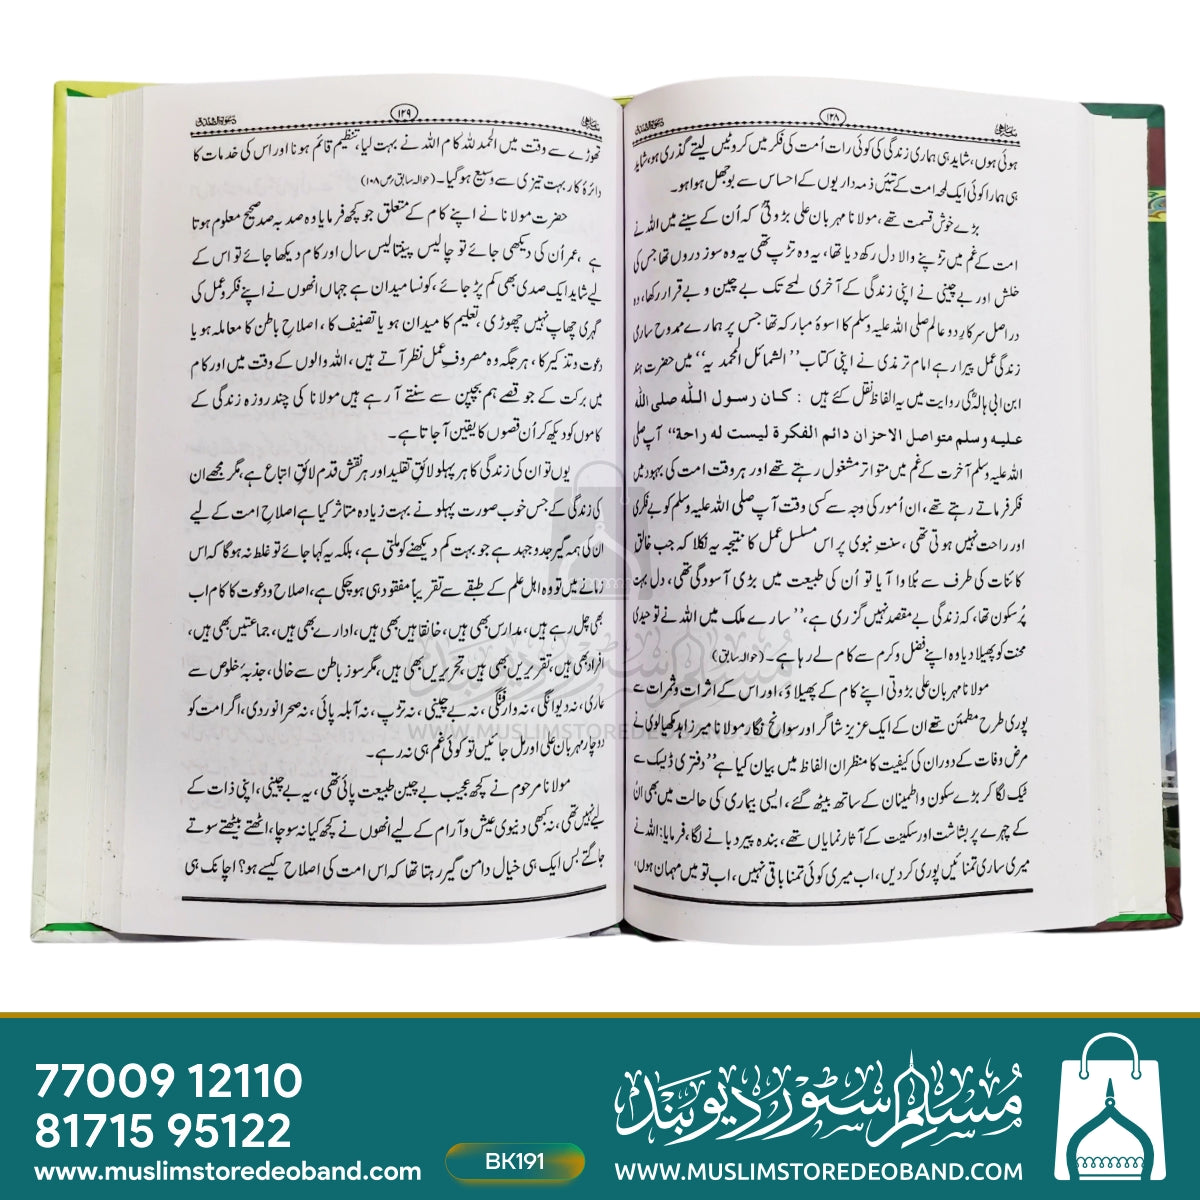 ۱۲۸
ہوئی ہوں، شاید ہی ہماری زندگی کی کوئی رات اُمت کی فکر میں کروٹیں لیتے گذری ہو، شاید
ہی ہمارا کوئی ایک لمحہ امت کے تئیں ذمہ داریوں کے احساس سے بوجھل ہوا ہو۔
بڑے خوش قسمت تھے، مولانا مہربان علی بڑوتیؒ کہ اُن کے سینے میں اللہ نے
امت کے غم میں تڑپنے والا دل رکھ دیا تھا، یہ وہ تڑپ تھی یہ وہ سوز دروں تھا جس کی
خلش اور بے چینی نے اپنی زندگی کے آخری لمحے تک بے چین و بے قرار رکھا، وہ
در اصل سرکار دو عالم صلی اللہ علیہ وسلم کا اسوۂ مبارکہ تھا جس پر ہمارے ممدوح ساری
زندگی عمل پیرا رہے امام ترمذی نے اپنی کتاب ’’الشمائل المحمدیہ‘‘ میں حضرت ہند
ابن ابی ہالہؓ کی روایت میں یہ الفاظ نقل کئے ہیں : کان رسول اللّٰہ صلی اللّٰہ
علیہ وسلم متواصل الاحزان دائم الفکرۃ لیست لہ راحۃ‘‘ آپ صلی
اللہ علیہ وسلم آخرت کے غم میں متواتر مشغول رہتے تھے اور ہر وقت امت کی بہبود میں
فکر فرماتے رہتے تھے، ان اُمور کی وجہ سے کسی وقت آپ صلی اللہ علیہ وسلم کو بے فکری
اور راحت نہیں ہوتی تھی، سنت نبوی پر اس مسلسل عمل کا نتیجہ یہ نکلا کہ جب خالق
کائنات کی طرف سے بُلاوا آیا تو اُن کی طبیعت میں بڑی آسودگی تھی، دل بہت
پُرسکون تھا، کہ زندگی بے مقصد نہیں گزری ہے، ’’سارے ملک میں اللہ نے توحیدی
محنت کو پھیلا دیا وہ اپنے فضل و کرم سے کام لے رہا ہے۔ (حوالہ سابق)
مولانا مہربان علی بڑوتی اپنے کام کے پھیلاؤ، اور اس کے اثرات و ثمرات سے
پوری طرح مطمئن تھے ان کے ایک عزیز شاگر اور سوانح نگار مولانا میر زاہد کھیالوی نے
مرض وفات کے دوران کی کیفیت کا منظر ان الفاظ میں بیان کیا ہے ’’دفتری ڈیسک سے
ٹیک لگا کر بڑے سکون و اطمینان کے ساتھ بیٹھ گئے، ایسی بیماری کی حالت میں بھی ان
کے چہرے پر بشاشت اور سکینت کے آثار نمایاں تھے، بندہ پیر دبانے لگا، فرمایا: اللہ نے
میری ساری تمنائیں پوری کر دیں، اب میری کوئی تمنا باقی نہیں، اب تو میں مہمان ہوں،
۱۲۹
تھوڑے سے وقت میں الحمد للہ کام اللہ نے بہت لیا، تنظیم قائم ہونا اور اس کی خدمات کا
دائرۂ کار بہت تیزی سے وسیع ہو گیا۔ (حوالہ سابق ص ۱۰۸)
حضرت مولانا نے اپنے کام کے متعلق جو کچھ فرمایا وہ صد بہ صد صحیح معلوم ہوتا
ہے، عمر اُن کی دیکھی جائے تو چالیس پینتالیس سال اور کام دیکھا جائے تو اس کے
لیے شاید ایک صدی بھی کم پڑ جائے، کونسا میدان ہے جہاں انھوں نے اپنے فکر و عمل کی
گہری چھاپ نہیں چھوڑی، تعلیم کا میدان ہو یا تصنیف کا، اصلاح باطن کا معاملہ ہو یا
دعوت و تذکیر کا، ہر جگہ وہ مصروف عمل نظر آتے ہیں، اللہ والوں کے وقت میں اور کام
میں برکت کے جو قصے ہم بچپن سے سنتے آ رہے ہیں مولانا کی چند روزہ زندگی کے
کاموں کو دیکھ کر اُن قصوں کا یقین آ جاتا ہے۔
یوں تو ان کی زندگی کا ہر پہلو لائق تقلید اور ہر نقش قدم لائق اتباع ہے، مگر مجھے ان
کی زندگی کے جس خوب صورت پہلو نے بہت زیادہ متاثر کیا ہے اصلاح امت کے لیے
ان کی ہمہ گیر جدوجہد ہے جو بہت کم دیکھنے کو ملتی ہے، بلکہ یہ کہا جائے تو غلط نہ ہوگا کہ اس
زمانے میں تو وہ اہل علم کے طبقے سے تقریباً مفقود ہی ہو چکی ہے، اصلاح و دعوت کا کام اب
بھی چل رہے ہیں، مدارس بھی ہیں، خانقاہیں بھی ہیں، ادارے بھی ہیں، جماعتیں بھی ہیں،
افراد بھی ہیں، تقریریں بھی ہیں، تحریریں بھی ہیں، مگر سوز باطن سے خالی، جذبۂ خلوص سے
عاری، نہ دیوانگی، نہ وارفتگی، نہ بے چینی، نہ تڑپ، نہ آبلہ پائی، نہ صحرا نوردی، اگر امت کو
دو چار مہربان علی اور مل جائیں تو کوئی غم ہی نہ رہے۔
مولانا مرحوم نے کچھ عجیب بے چین طبیعت پائی تھی، یہ بے چینی، اپنی ذات کے
لیے نہیں تھی، نہ کبھی دنیوی عیش و آرام کے لیے انھوں نے کچھ کیا نہ سوچا، اٹھتے بیٹھتے سوتے
جاگتے بس ایک ہی خیال دامن گیر رہتا تھا کہ اس امت کی اصلاح کیسے ہو؟ اچانک ہی
مسلم سٹور دیوبند
WWW.MUSLIMSTOREDEOBAND.COM
77009 12110
81715 95122
www.muslimstoredeoband.com
BK191
مسلم سٹور دیوبند
WWW.MUSLIMSTOREDEOBAND.COM